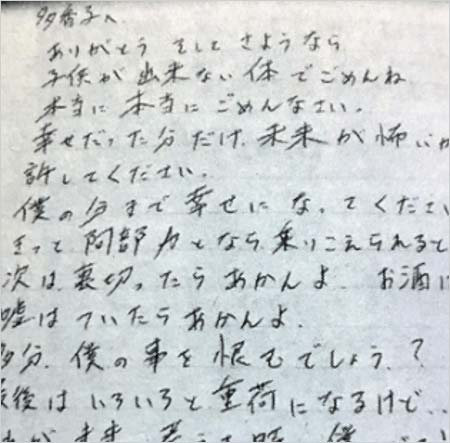 多香子へ
ありがとう そして さようなら
子供が出来ない体でごめんね
本当に本当にごめんなさい。
幸せだった分だけ、未来が怖いか
許してください。
僕の分まで幸せになってください
きっと、阿部力となら乗りこえられると
次は、裏切ったらあかんよ。 お酒は
嘘はついたらあかんよ。
多分、僕の事を恨むでしょう?
最後はいろいろと重荷になるけど...
未来